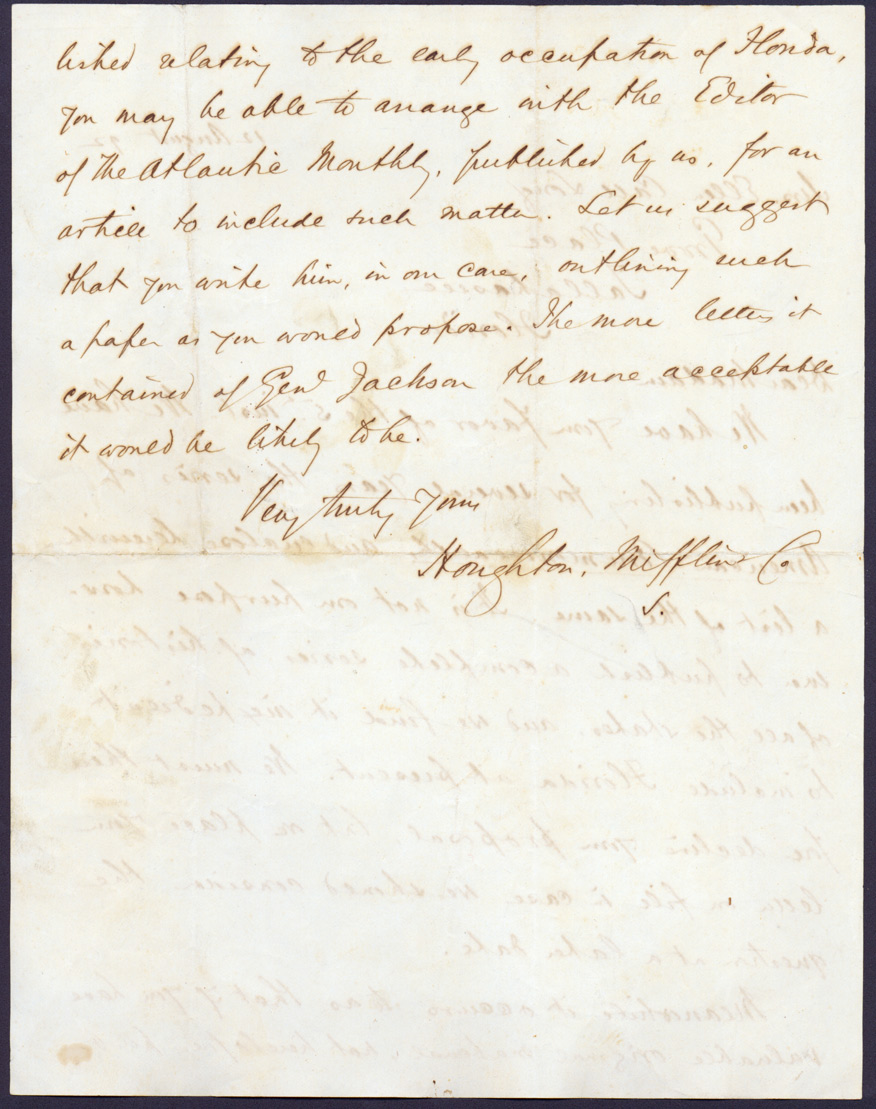 lished relating to the early occupation of Florida,
you may be able to arrange with the Editor
of The Atlantic Monthly, published by us, for an
article to include such matter. Let us suggest
that you write him, in our care, outlining such
a paper as you would propose. The more letters it
contained of Genl Jackson the more acceptable
it would be likely to be.
Very truly yours
Houghton, Mifflin & Co
S.